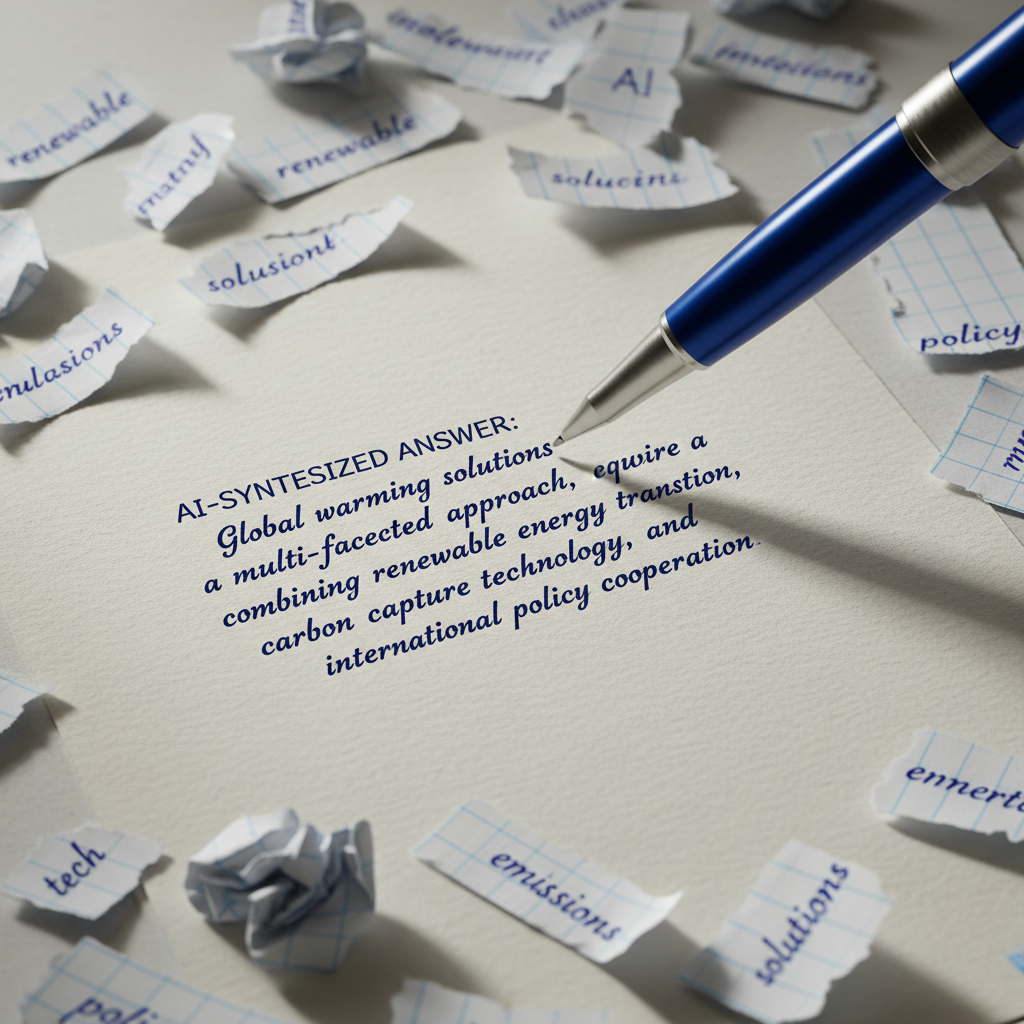 renewable
AI
renewable
solucint
solusiont
policy
AI-SYNTESIZED ANSWER:
Global warming solutions
equire a
a multi-facected approach,
combining renewable energy transtion,
carbon capture technology, and
international policy cooperation.
tech
emissions
solutions